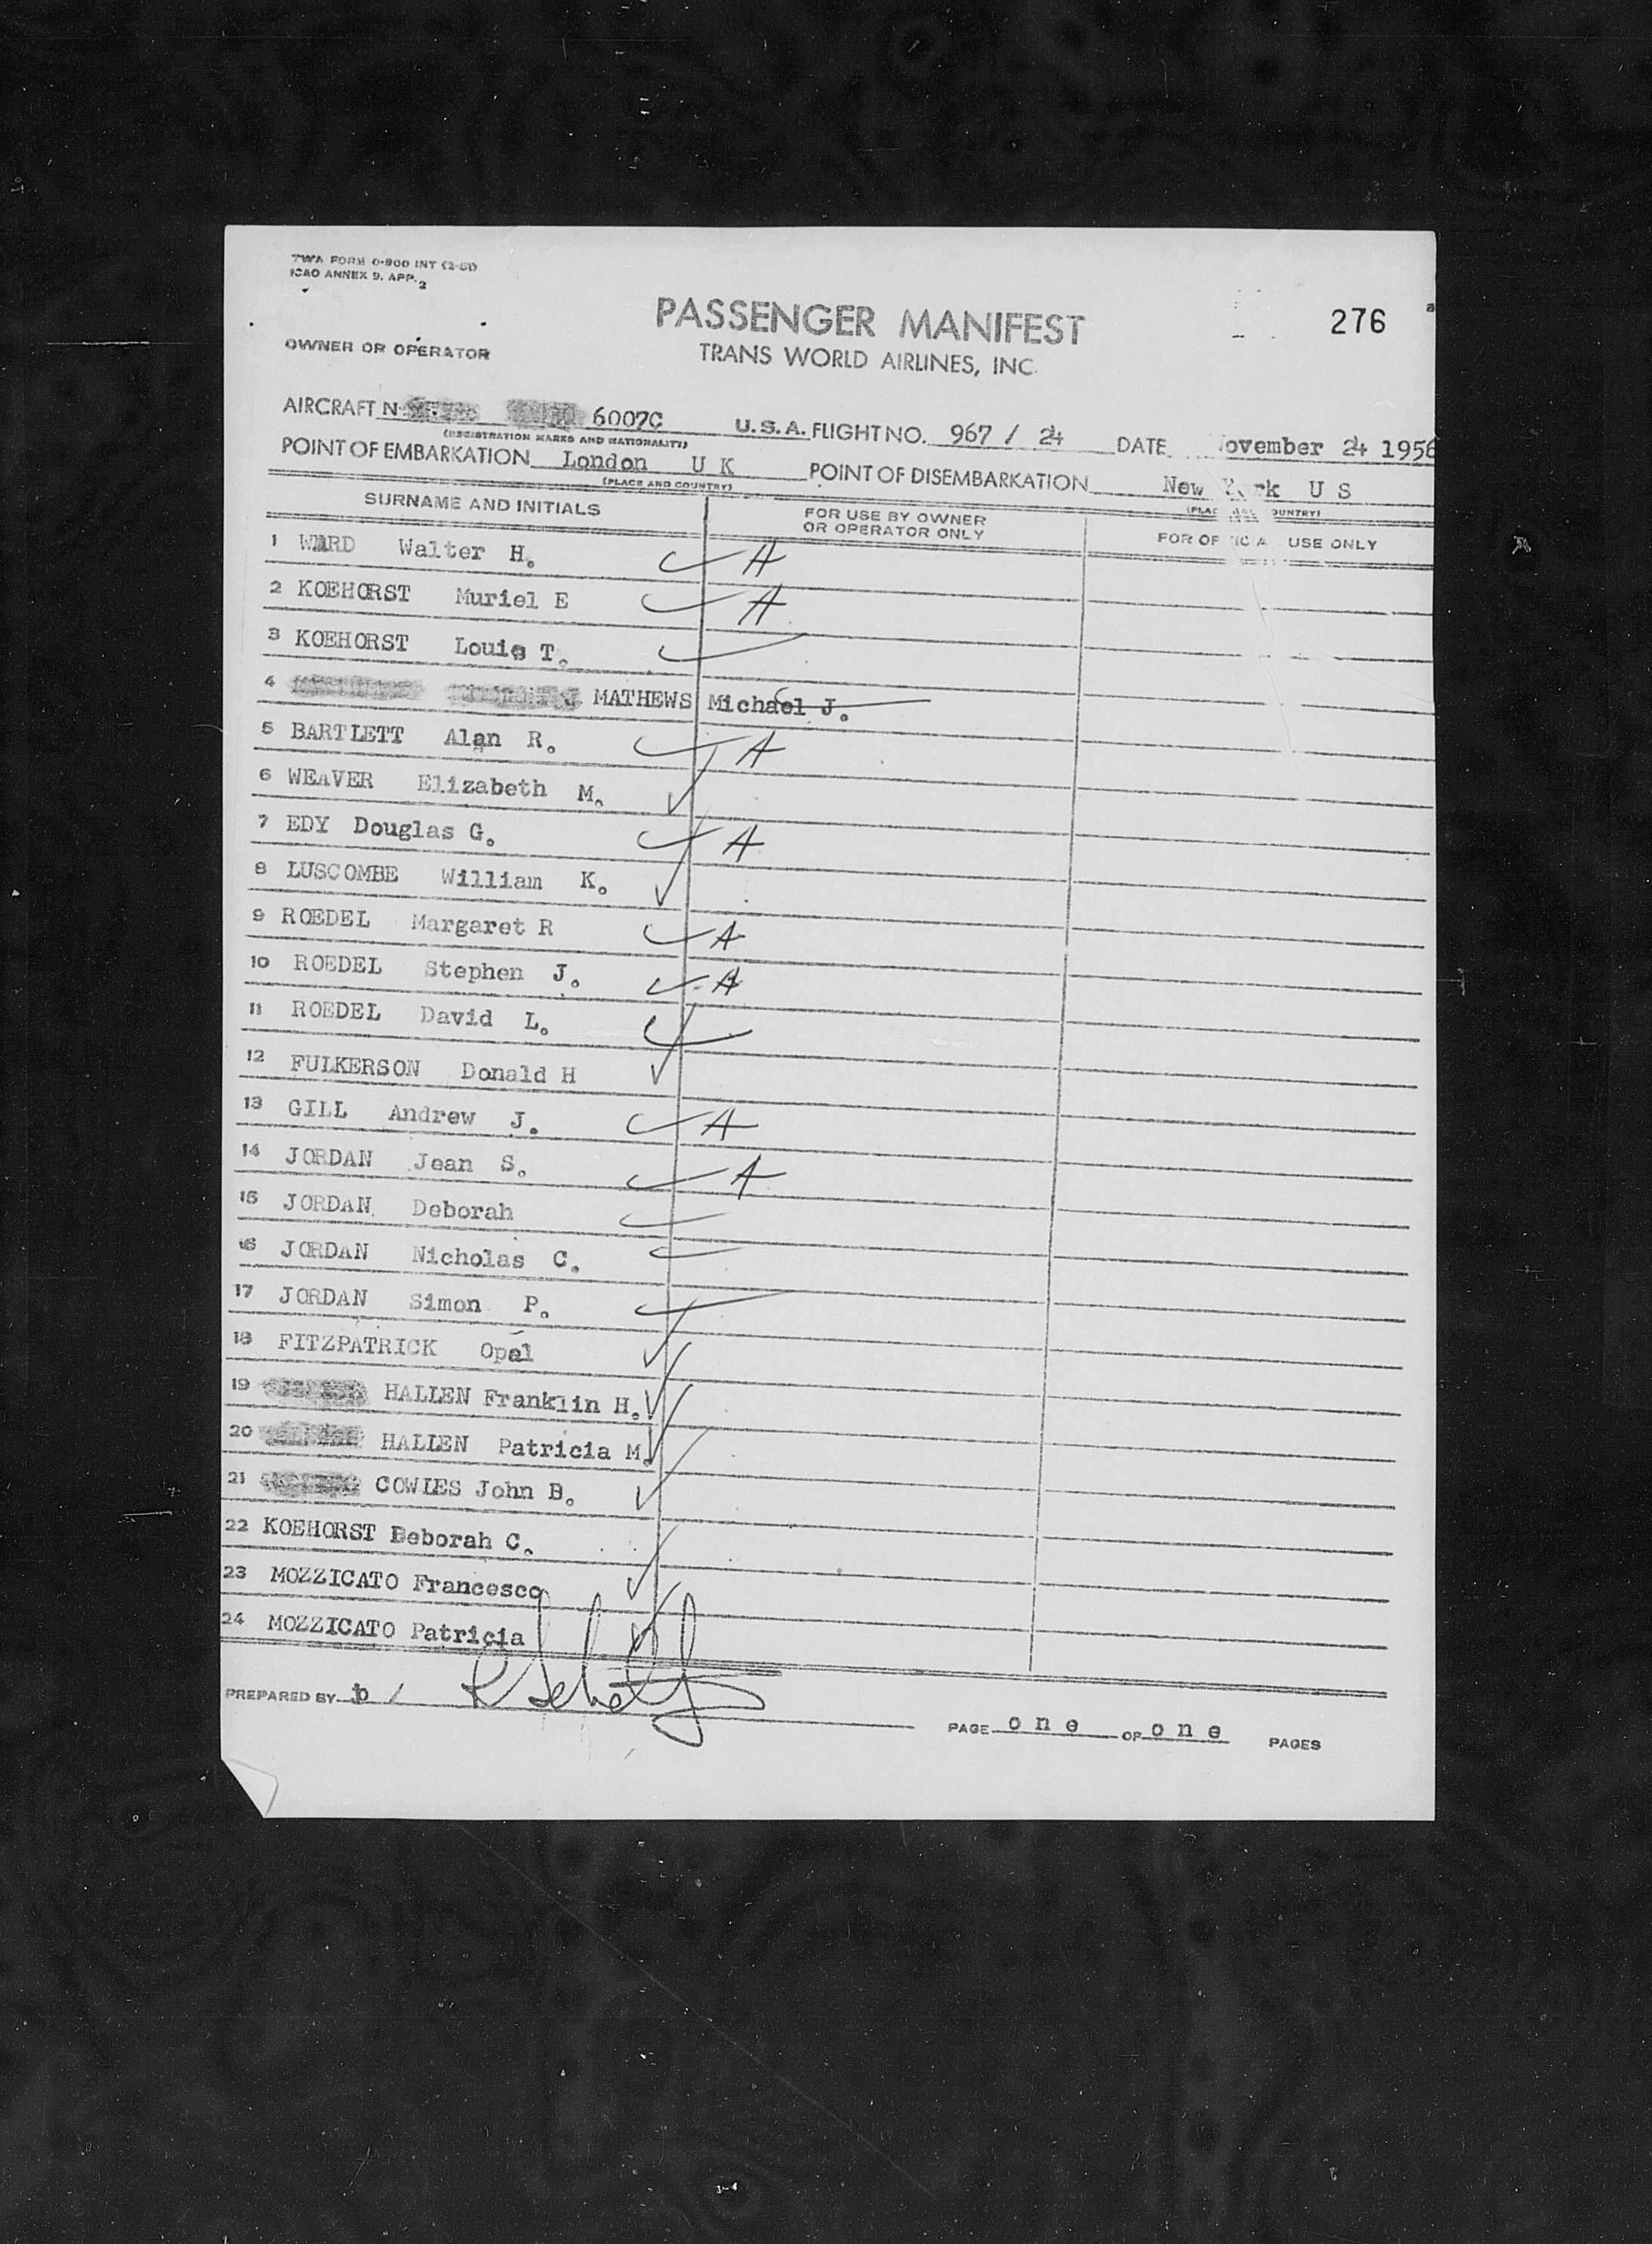 TWA FORM O-800 INT (2-51)
ICAO ANNEX 9, APP. 2
PASSENGER MANIFEST
276
OWNER OR OPERATOR
TRANS WORLD AIRLINES, INC.
AIRCRAFT N 6007C U.S.A. FLIGHT NO. 967 / 24 DATE ovember 24 1956
(REGISTRATION MARKS AND NATIONALITY)
POINT OF EMBARKATION London U K POINT OF DISEMBARKATION New York U S
(PLACE AND COUNTRY) (PLACE AND COUNTRY)
SURNAME AND INITIALS FOR USE BY OWNER OR OPERATOR ONLY FOR OFFICIAL USE ONLY
1 WARD Walter H. A
2 KOEHORST Muriel E A
3 KOEHORST Louis T.
4 MATHEWS Michael J.
5 BARTLETT Alan R. A
6 WEAVER Elizabeth M.
7 EDY Douglas G. A
8 LUSCOMBE William K.
9 ROEDEL Margaret R A
10 ROEDEL Stephen J. A
11 ROEDEL David L.
12 FULKERSON Donald H
13 GILL Andrew J. A
14 JORDAN Jean S. A
15 JORDAN Deborah
16 JORDAN Nicholas C.
17 JORDAN Simon P.
18 FITZPATRICK Opal
19 HALLEN Franklin H.
20 HALLEN Patricia M.
21 COWLES John B.
22 KOEHORST Deborah C.
23 MOZZICATO Francesco
24 MOZZICATO Patricia
PREPARED BY b /
PAGE one OF one PAGES